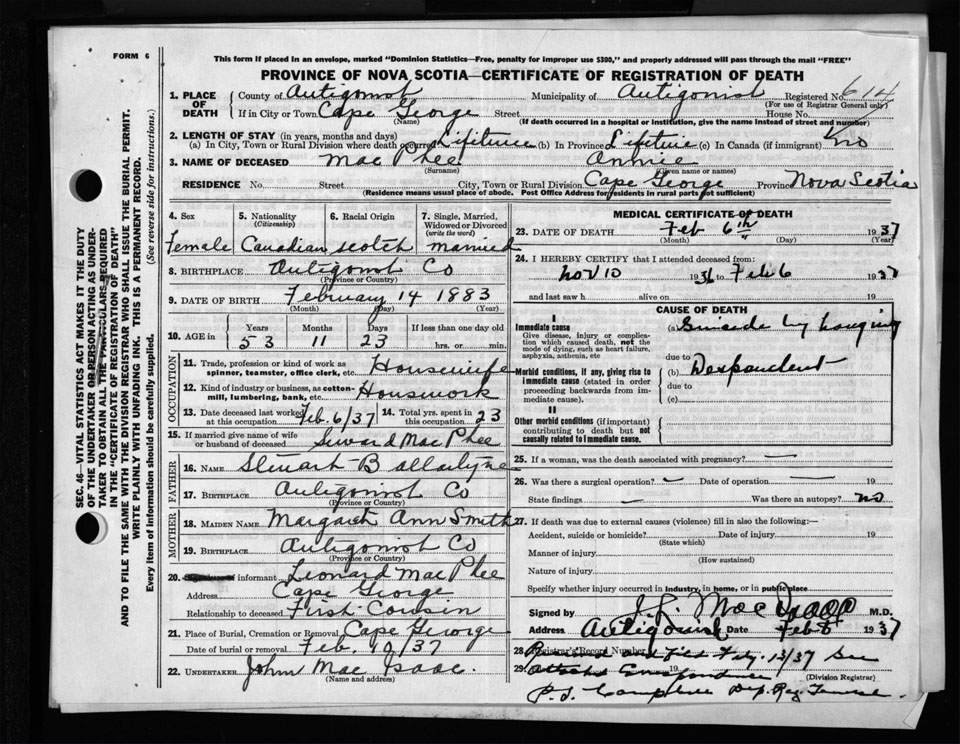 FORM 6
This form if placed in an envelope, marked "Dominion Statistics—Free, penalty for improper use $300," and properly addressed will pass through the mail "FREE"
PROVINCE OF NOVA SCOTIA—CERTIFICATE OF REGISTRATION OF DEATH
1. PLACE OF DEATH County of Antigonish Municipality of Antigonish Registered No. 614
(For use of Registrar General only)
If in City or Town Cape George Street House No.
(Name) (If death occurred in a hospital or institution, give the name instead of street and number)
2. LENGTH OF STAY (in years, months and days)
(a) In City, Town or Rural Division where death occurred Lifetime (b) In Province Lifetime (c) In Canada (if immigrant) no
3. NAME OF DECEASED Mac Phee Annie
(Surname) (Given name or names)
RESIDENCE No. Street City, Town or Rural Division Cape George Province Nova Scotia
(Residence means usual place of abode. Post Office Address for residents in rural parts not sufficient)
4. Sex 5. Nationality 6. Racial Origin 7. Single, Married, Widowed or Divorced
(Citizenship) (write the word)
Female Canadian Scotch married
8. BIRTHPLACE Antigonish Co
(Province or Country)
9. DATE OF BIRTH February 14 1883
(Month) (Day) (Year)
10. AGE in Years Months Days If less than one day old
53 11 23 hrs. or min.
OCCUPATION
11. Trade, profession or kind of work as spinner, teamster, office clerk, etc. Housewife
12. Kind of industry or business, as cotton-mill, lumbering, bank, etc. Housework
13. Date deceased last worked at this occupation Feb. 6/37 14. Total yrs. spent in this occupation 23
15. If married give name of wife or husband of deceased Mac Phee
FATHER
16. NAME Stewart B
17. BIRTHPLACE Antigonish Co
(Province or Country)
MOTHER
18. MAIDEN NAME Margaret Ann Smith
19. BIRTHPLACE Antigonish Co
(Province or Country)
20. informant Leonard Mac Phee
Address Cape George
Relationship to deceased First Cousin
21. Place of Burial, Cremation or Removal Cape George
Date of burial or removal Feb. /37
22. UNDERTAKER John Mac Isaac
(Name and address)
MEDICAL CERTIFICATE OF DEATH
23. DATE OF DEATH Feb 6th 1937
(Month) (Day) (Year)
24. I HEREBY CERTIFY that I attended deceased from:
Nov 10 1936 to Feb 6 1937
and last saw h alive on 19
CAUSE OF DEATH
I
Immediate cause (a) Suicide by hanging
Give disease, injury or complication which caused death, not the mode of dying, such as heart failure, asphyxia, asthenia, etc
due to
Morbid conditions, if any, giving rise to immediate cause (stated in order proceeding backwards from immediate cause). (b) Despondent
due to
(c)
II
Other morbid conditions (if important) contributing to death but not causally related to immediate cause.
25. If a woman, was the death associated with pregnancy? —
26. Was there a surgical operation? — Date of operation — 19
State findings — Was there an autopsy? no
27. If death was due to external causes (violence) fill in also the following:—
Accident, suicide or homicide? Date of injury 19
(State which)
Manner of injury
(How sustained)
Nature of injury
Specify whether injury occurred in industry, in home, or in public place
Signed by M.D.
Address Antigonish Date Feb 1937
28. Registrar's Record Number Filed 13/37 See
29. Correspondence 19
(Division Registrar)
Dep. Reg.
SEC. 46—VITAL STATISTICS ACT MAKES IT THE DUTY
OF THE UNDERTAKER OR PERSON ACTING AS UNDER-
TAKER TO OBTAIN ALL THE PARTICULARS REQUIRED
IN THE "CERTIFICATE OF REGISTRATION OF DEATH"
AND TO FILE THE SAME WITH THE DIVISION REGISTRAR WHO SHALL ISSUE THE BURIAL PERMIT.
WRITE PLAINLY WITH UNFADING INK. THIS IS A PERMANENT RECORD.
Every item of information should be carefully supplied. (See reverse side for instructions.)